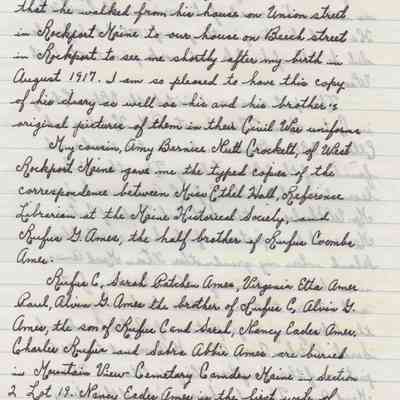 that he walked from his house on Union street
in Rockport Maine to our house on Beech street
in Rockport to see me shortly after my birth in
August 1917. I am so pleased to have this copy
of his diary as well as his and his brother's
original pictures of them in their Civil War uniforms
My cousin, Amy Bernice Nutt Crockett, of West
Rockport Maine gave me the typed copies of the
correspondence between Miss Ethel Hall, Reference
Librarian at the Maine Historical Society, and
Rufus G. Ames, the half brother of Rufus Coombs
Ames.
Rufus C, Sarah Patchen Ames, Virginia Etta Ames
Paul, Alvin G. Ames the brother of Rufus C, Alvin G.
Ames, the son of Rufus C and Sarah, Nancy Eades Ames,
Charlie Rufus and Sabra Abbie Ames are buried
in Mountain View Cemetery Camden Maine in Section
2 Lot 19. Nancy Eades Ames is the first wife of